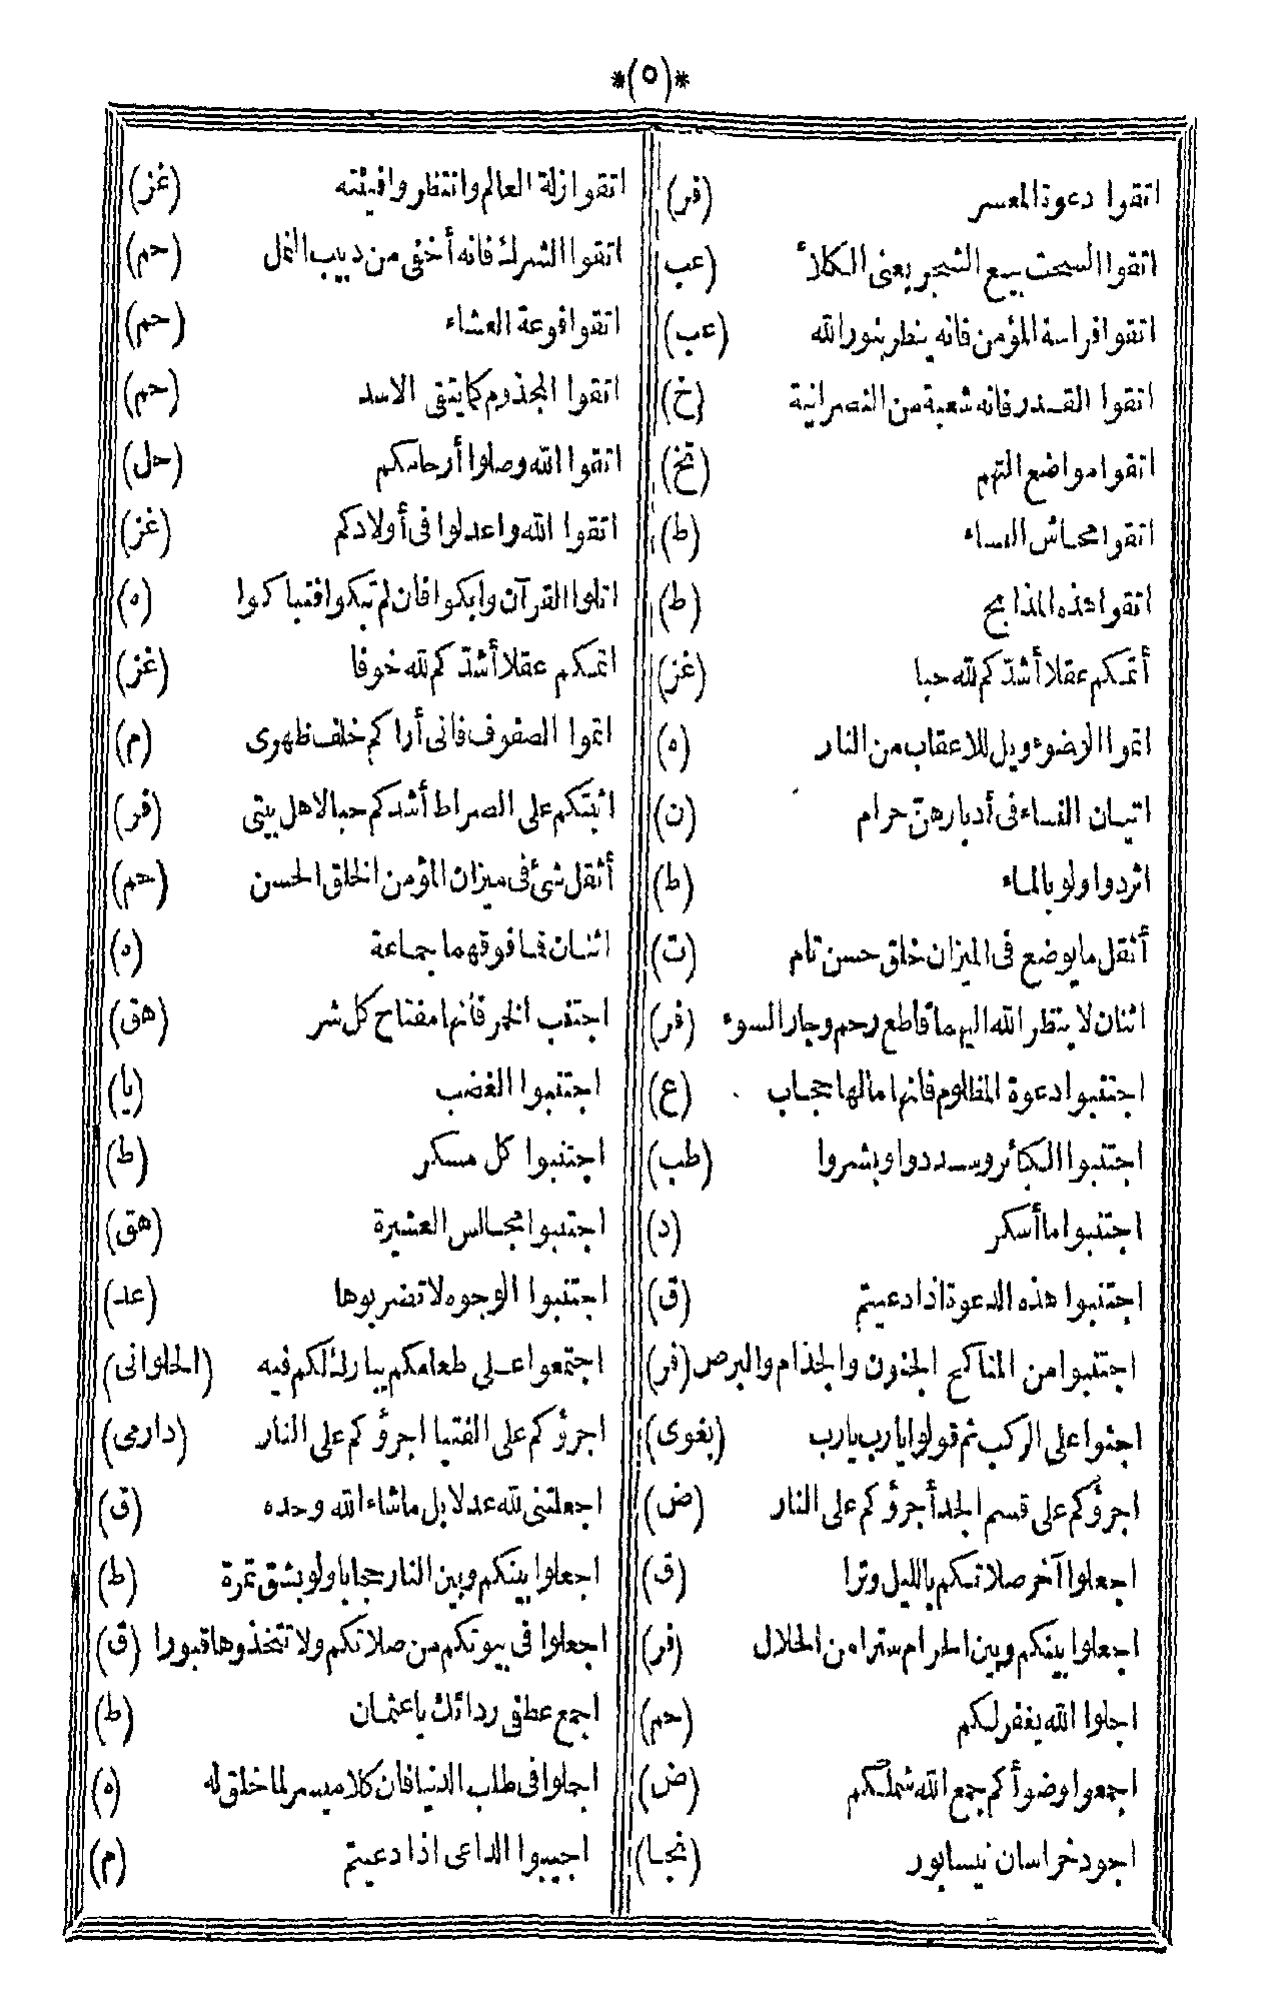 *(٥)*
اتقوا دعوة المعسر (فر)
اتقوا السحت بيع الشجر يعنى الكلأ (عب)
اتقوا فراسة المؤمن فانه ينظر بنور الله (عب)
اتقوا القدر فانه شعبة من النصرانية (خ)
اتقوا مواضع التهم (تخ)
اتقوا محاش النساء (ط)
اتقوا هذه المذابح (ط)
أتمكم عقلا أشدّكم لله حبا (غز)
اتموا الوضوء ويل للاعقاب من النار (ه)
اتيان النساء فى أدبارهنّ حرام (ن)
اثردوا ولو بالماء (ط)
أثقل ما يوضع فى الميزان خلق حسن تام (ت)
اثنان لا ينظر الله اليهما قاطع رحم وجار السوء (فر)
اجتنبوا دعوة المظلوم فانها مالها حجاب (ع)
اجتنبوا الكبائر وسددوا وبشروا (طب)
اجتنبوا ما أسكر (د)
اجتنبوا هذه الدعوة اذا دعيتم (ق)
اجتنبوا من المناكح الجنون والجذام والبرص (فر)
اجثوا على الركب ثم قولوا يارب يارب (بغوى)
اجرؤكم على قسم الجد أجرؤكم على النار (ض)
اجعلوا آخر صلاتكم بالليل وترا (ق)
اجعلوا بينكم وبين الحرام سترا من الحلال (فر)
اجلوا الله يغفر لكم (حم)
اجمعوا وضوأكم جمع الله شملكم (ض)
اجود خراسان نيسابور (نجا)
اتقوا زلة العالم وانتظروا فيئته (غز)
اتقوا الشرك فانه أخفى من دبيب النمل (حم)
اتقوا فوعة العشاء (حم)
اتقوا المجذوم كما يتقى الاسد (حم)
اتقوا الله وصلوا أرحامكم (حل)
اتقوا الله واعدلوا فى أولادكم (غز)
اتلوا القرآن وابكوا فان لم تبكوا فتباكوا (ه)
اتمكم عقلا أشدّكم لله خوفا (غز)
اتموا الصفوف فانى أراكم خلف ظهرى (م)
اثبتكم على الصراط أشدكم حبا لاهل بيتى (فر)
أثقل شئ فى ميزان المؤمن الخلق الحسن (حم)
اثنان فما فوقهما جماعة (ه)
اجتنب الخمر فانها مفتاح كل شر (هق)
اجتنبوا الغضب (يا)
اجتنبوا كل مسكر (ط)
اجتنبوا مجالس العشيرة (هق)
اجتنبوا الوجوه لا تضربوها (عد)
اجتمعوا على طعامكم يبارك لكم فيه (الحلوانى)
اجرؤكم على الفتيا اجرؤكم على النار (دارمى)
اجعلتنى لله عدلا بل ماشاء الله وحده (ق)
اجعلوا بينكم وبين النار حجابا ولو بشق تمرة (ط)
اجعلوا فى بيوتكم من صلاتكم ولا تتخذوها قبورا (ق)
اجمع عطفى ردائك يا عثمان (ط)
اجملوا فى طلب الدنيا فان كلا ميسر لما خلق له (ه)
اجيبوا الداعى اذا دعيتم (م)